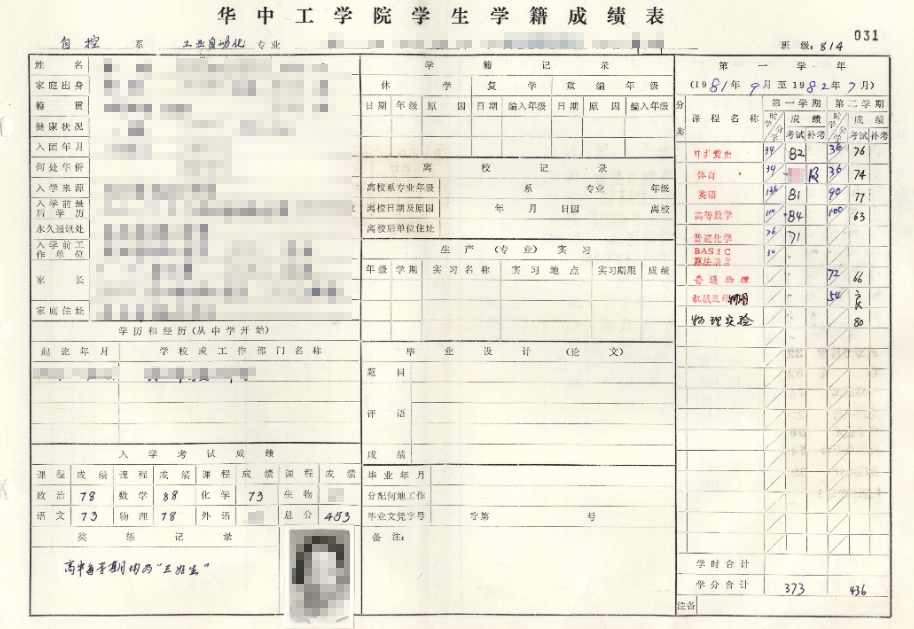 华中工学院学生学籍成绩表
031
自控 系 工业自动化 专业 班级：814
姓名
家庭出身
籍贯
健康状况
入团年月
何处华侨
入学来源
入学前最后学历
永久通讯处
入学前工作单位
家长
家庭住址
学历和经历（从中学开始）
起讫年月 学校或工作部门名称
入学考试成绩
课程 成绩 课程 成绩 课程 成绩 课程 成绩
政治 78 数学 88 化学 73 生物
语文 73 物理 78 外语 总分 453
奖惩记录
高中每学期均为“三好生”
学籍记录
休学 复学 重编年级
日期 年级 原因 日期 编入年级 日期 原因 编入年级
离校记录
离校系专业年级 系 专业 年级
离校日期及原因 年 月 日因 离校
离校后单位住址
生产（专业）实习
年级 学期 实习名称 实习地点 实习期限 成绩
毕业设计（论文）
题目
评语
成绩
毕业年月
分配何地工作
毕业文凭字号 字第 号
备注：
第一学年
（1981年9月至1982年7月）
分类 课程名称 第一学期 第二学期
学时/学分 成绩 学时/学分 成绩
考试 补考 考试 补考
中共党史 34 82 36 76
体育 34 及 36 74
英语 136 81 90 77
高等数学 84 100 63
普通化学 76 71
BASIC
算法语言 30
普通物理 72 66
54 良
物理实验 80
学时合计
学分合计 373 436
备注